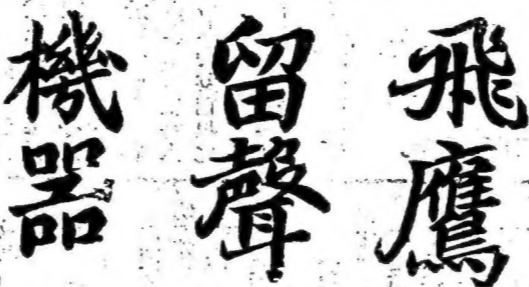 飛鷹
留聲
機器